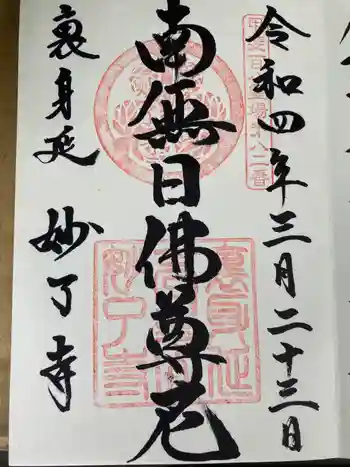 令和四年三月二十三日
南無日佛尊尼
裏身延
妙了寺